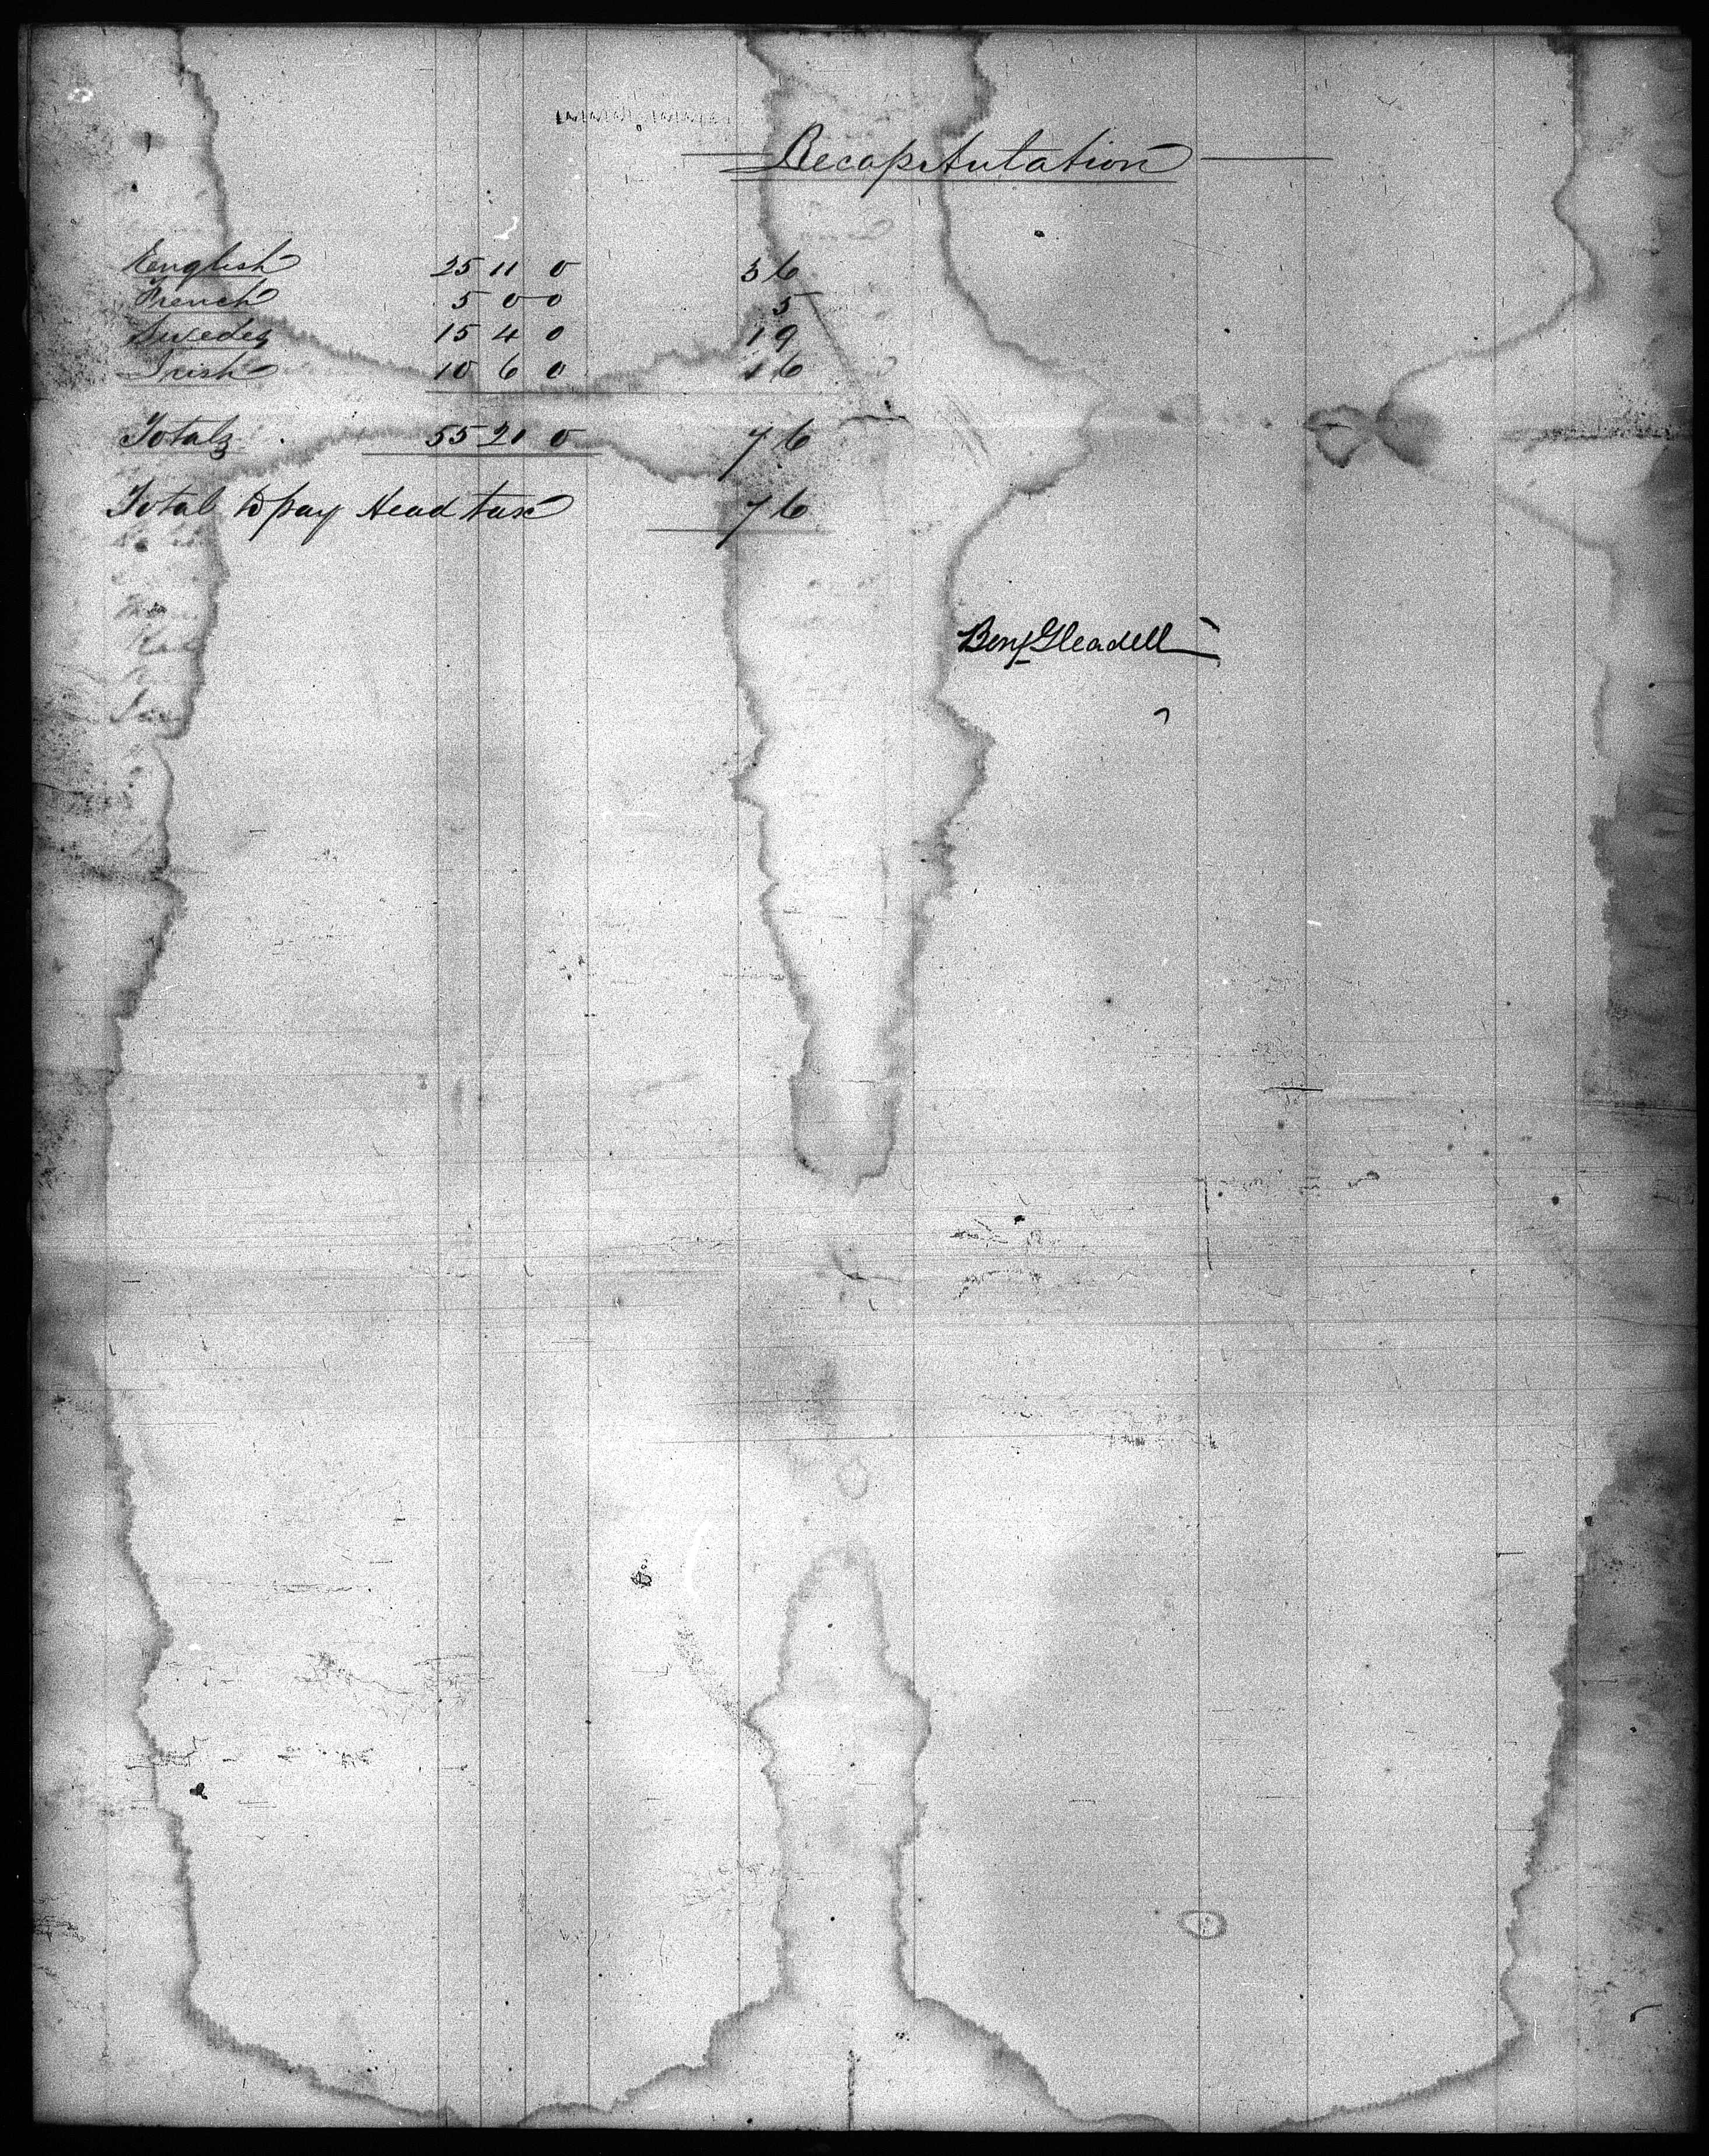 Recapitulation
English 25 11 0 36
French 5 0 0 5
Swedes 15 4 0 19
Irish 10 6 0 16
Totals 55 21 0 76
Total to pay Head tax 76
Benj Gleadell